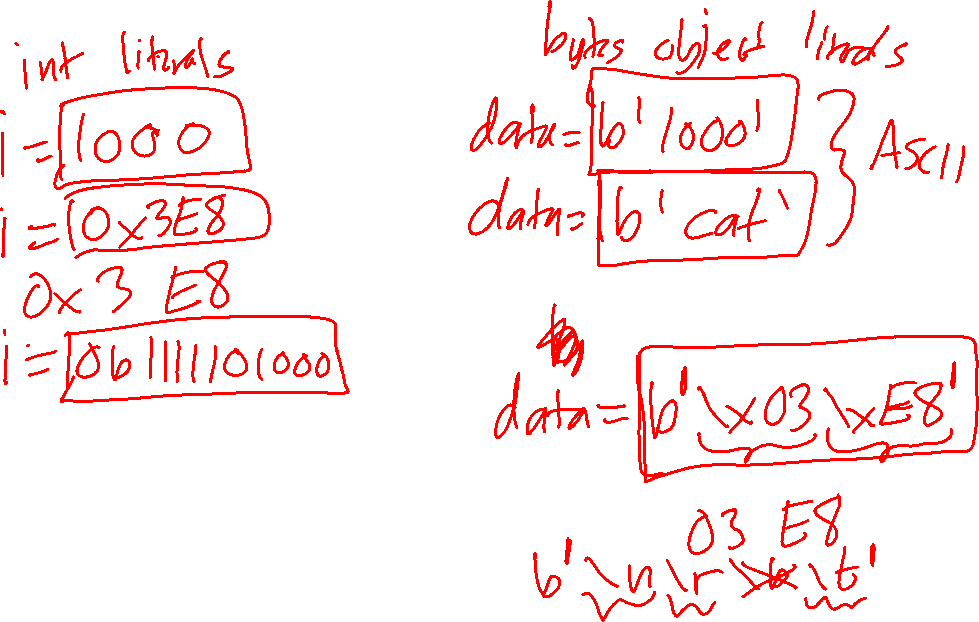 int literals
i = 1000
i = 0x3E8
0x 3 E8
i = 0b1111101000
bytes object literals
data = b'1000'
data = b'cat'
ASCII
data = b'\x03\xE8'
03 E8
b'\n\r\t'